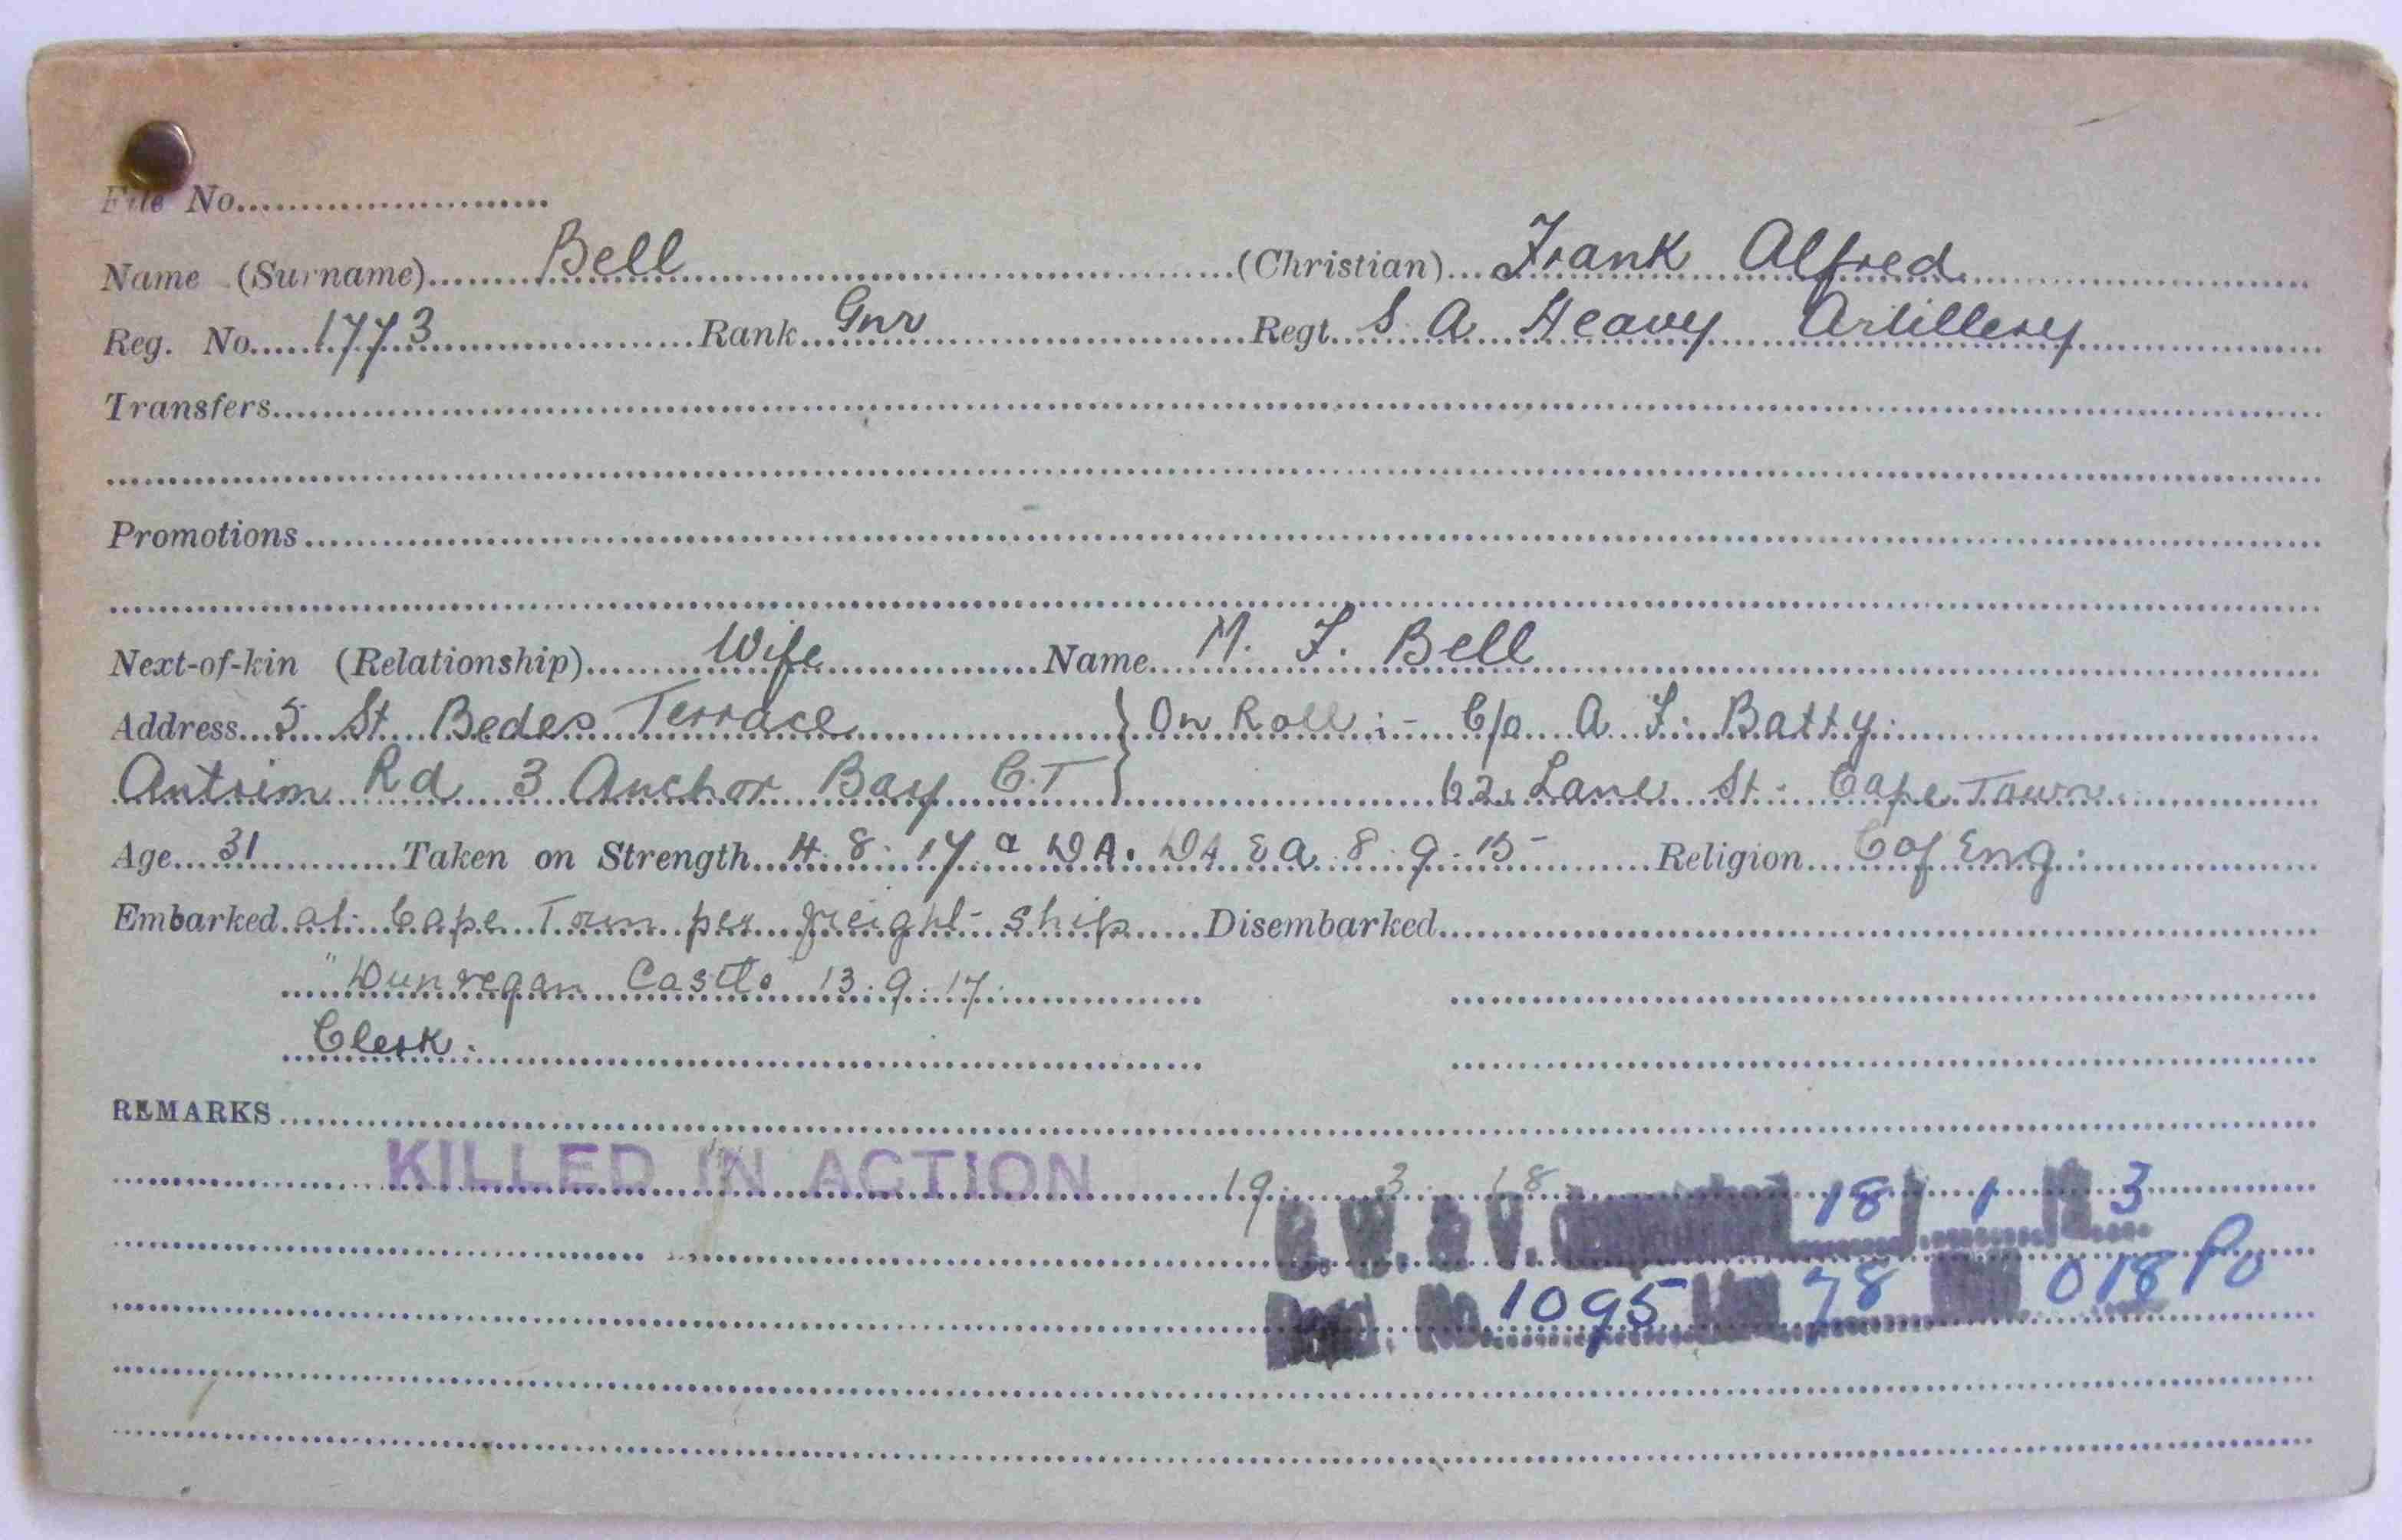 File No.
Name (Surname) Bell (Christian) Frank Alfred
Reg. No. 1773 Rank Gnr Regt. S A Heavy Artillery
Transfers
Promotions
Next-of-kin (Relationship) Wife Name M. F. Bell
Address 5 St Bedes Terrace } On Roll :- C/o A F. Batty.
Antrim Rd 3 Anchor Bay C.T } 62 Lane St. Cape Town
Age 31 Taken on Strength 4. 8. 17 8. 9. 15 Religion C of Eng.
Embarked at Cape Town per freight ship Disembarked
"Dunvegan Castle" 13. 9. 17.
Clerk.
REMARKS
KILLED IN ACTION 19. 3. 18
B. W. & V. 18 1 3
No. 1095 78 018 Po